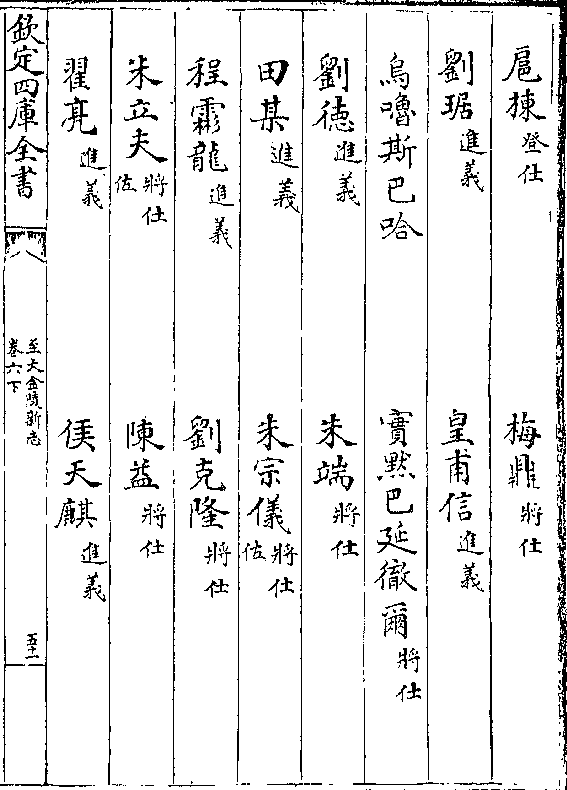 扈棟登仕　梅鼎將仕
劉琚進義　皇甫信進義
烏嚕斯巴哈　實黙巴延徹爾將仕
劉徳進義　朱端將仕
田某進義　朱宗儀將仕佐
程霖龍進義　劉克隆將仕
朱立夫將仕佐　陳益將仕
翟亮進義　侯天麒進義
欽定四庫全書　至大金陵新志卷六下　五十一